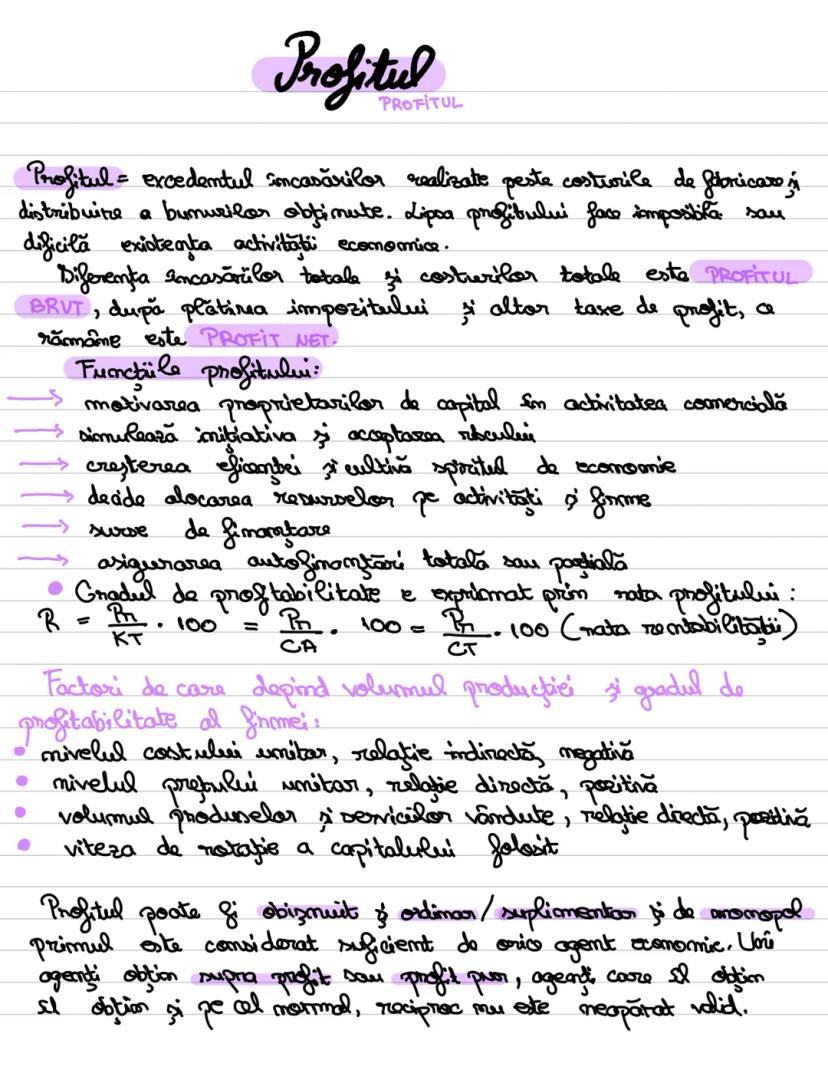 Profitul
PROFITUL
Profitul = excedentul încasărilor realizate peste costurile de fabricare și
distribuire a bunurilor obținute. Lipsa profitului face imposibilă sau
dificilă existența activității economice.
Diferența încasărilor totale și costurilor totale este PROFITUL
BRUT, după plătirea impozitului și altor taxe de profit, ce
rămâne este PROFIT NET.
Funcțiile profitului:
→ motivarea proprietarilor de capital în activitatea comercială
→ simulează inițiativa și acceptarea riscului
→ creșterea eficenței și cultivă spiritul de economie
→ decide alocarea resurselor pe activități și firme
→ surse de finanțare
→ asigurarea autofinanțări totală sau parțială
• Gradul de profitabilitate e exprimat prin rata profitului:
R = Pn/KT · 100 = Pn/CA · 100 = Pn/CT · 100 (rata rentabilității)
Factori de care depind volumul producției și gradul de
profitabilitate al firmei:
• nivelul costului unitar, relație indirectă, negativă
• nivelul prețului unitar, relație directă, pozitivă
• volumul produselor și servicilor vândute, relație directă, pozitivă
• viteza de rotație a capitalului folosit
Profitul poate fi obișnuit și ordinar/suplimentar și de monopol
primul este considerat suficient de orice agent economic. Unii
agenți obțin supra profit sau profit pur, agenți care îl obțin
îl obțin și pe cel normal, reciproc nu este neapărat valid.